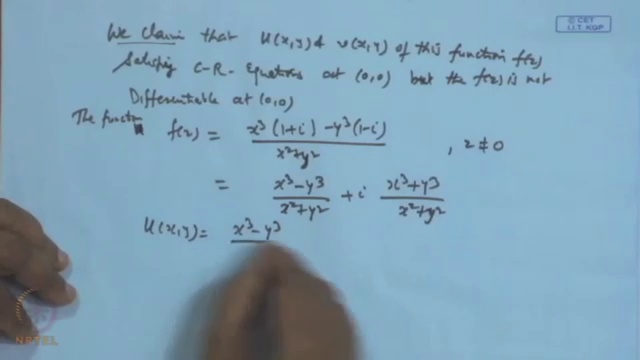 © CET
I.I.T. KGP
We claim that u(x,y) & v(x,y) of this function f(z)
Satisfying C-R- Equations at (0,0) but the f(z) is not
Differentiable at (0,0)
The functn f(z) = x³(1+i) - y³(1-i) / x²+y² , z ≠ 0
= x³-y³ / x²+y² + i x³+y³ / x²+y²
u(x,y) = x³-y³
NPTEL